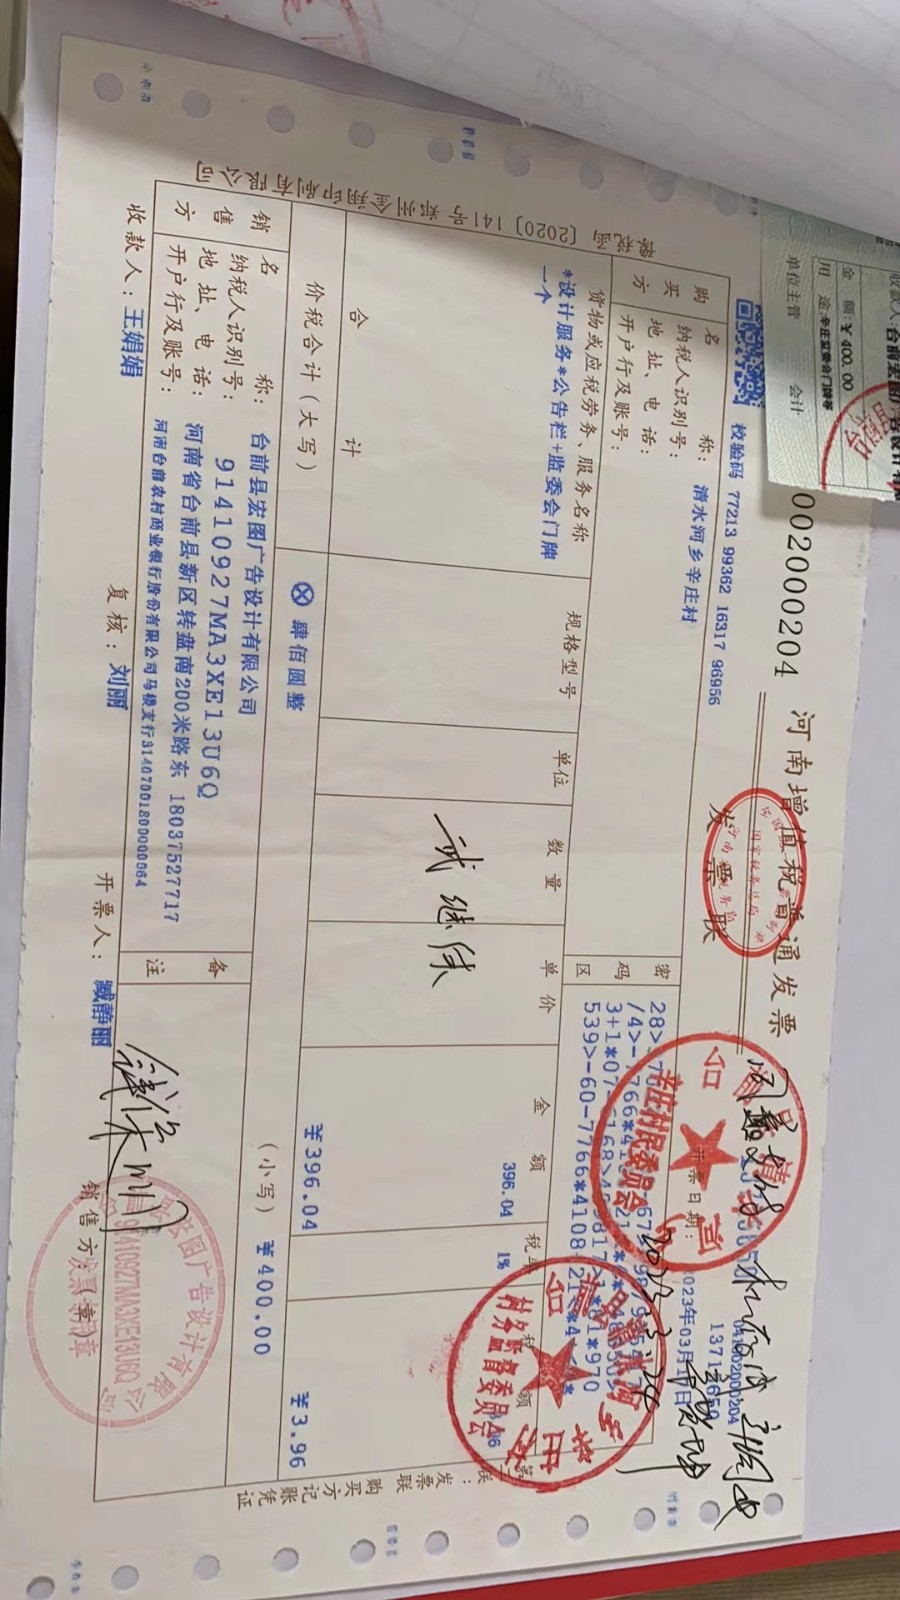 收款人 台前宏图广告设计有限
金 额:￥400.00
用 途:辛庄监委会门牌等
单位主管 会计
002000204
河南增值税普通发票
发票联
校验码 77213 99362 16317 96956
041002000204
开票日期:
2023年03月
购买方
名 称: 清水河乡辛庄村
纳税人识别号:
地 址、电 话:
开户行及账号:
密码区
539>-60-7766*4108
货物或应税劳务、服务名称 规格型号 单位 数 量 单 价 金 额 税率 税 额
*设计服务*公告栏+监委会门牌 396.04 1%
一个
合 计 ￥396.04 ￥3.96
价税合计(大写) ⊗肆佰圆整 (小写) ￥400.00
销售方
名 称: 台前县宏图广告设计有限公司
纳税人识别号: 91410927MA3XE13U6Q
地 址、电 话: 河南省台前县新区转盘南200米路东 18037527717
开户行及账号: 河南台前农村商业银行股份有限公司马楼支行91407001800000064
备注
收款人: 王娟娟 复核: 刘丽 开票人: 臧静丽 销售方:(章)
税函〔2020〕141号郑州金翔印刷有限公司
联:发票联 购买方记账凭证
辛庄村民委员会
村务监督委员会
宏图广告设计有限公司
91410927MA3XE13U6Q
发票专用章